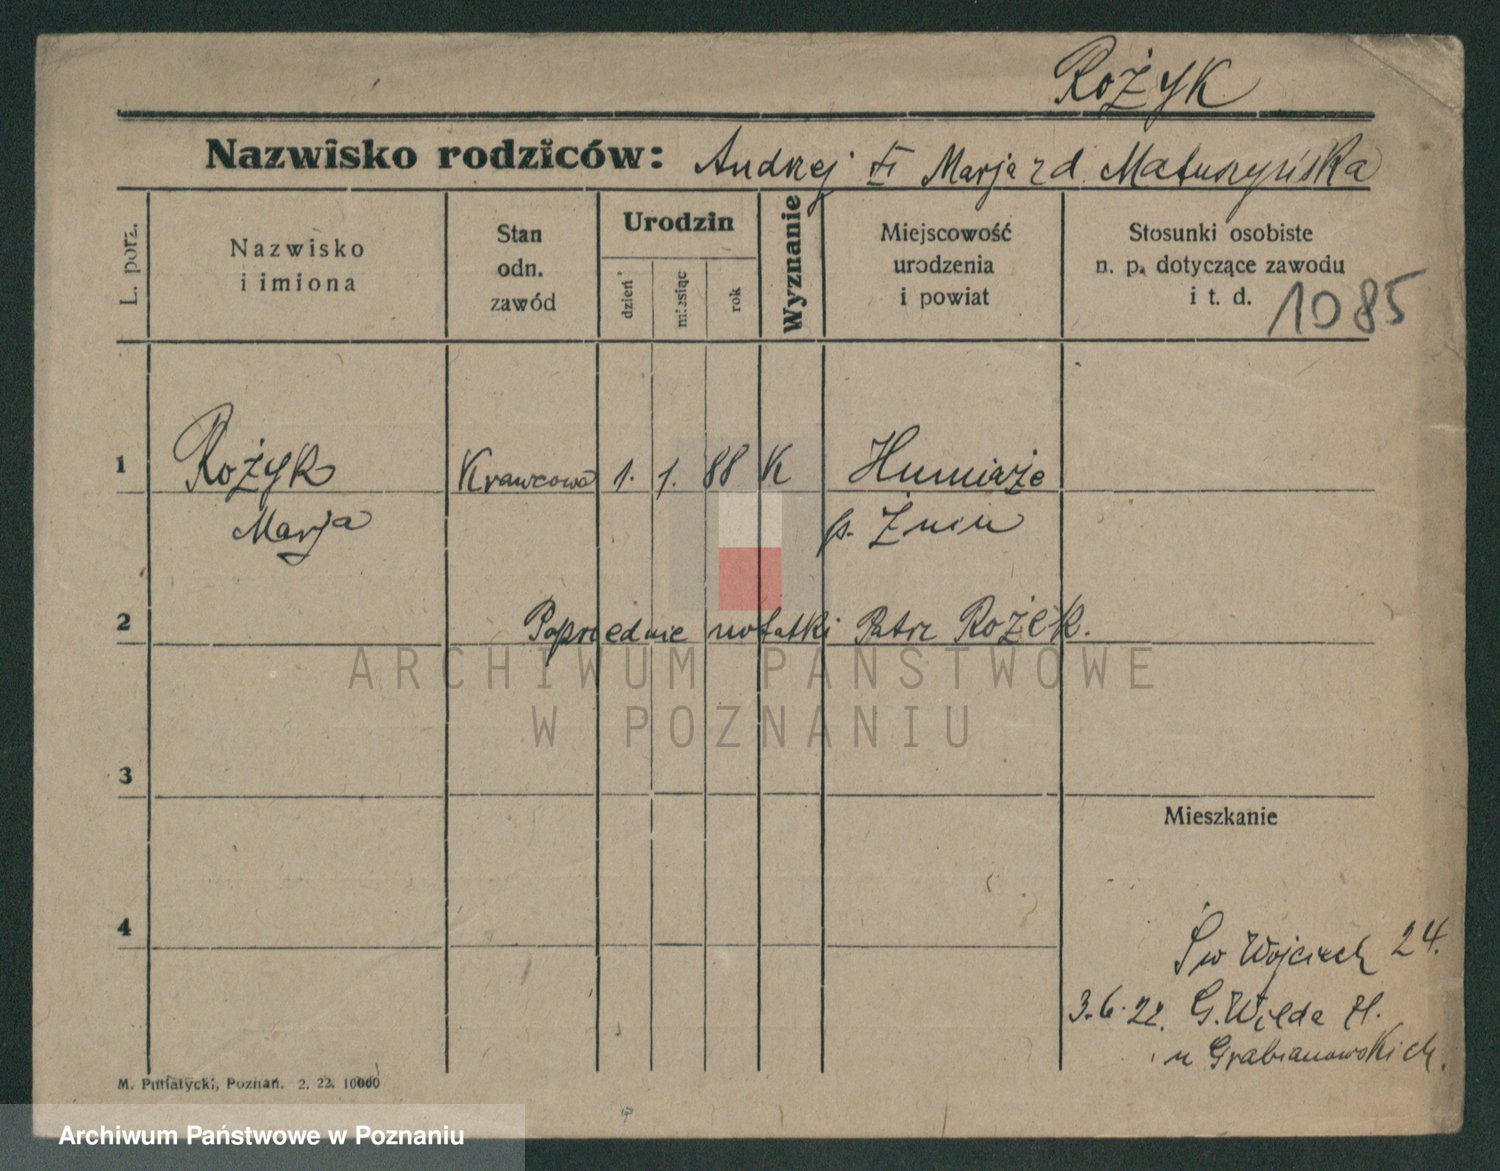 Rożyk
Nazwisko rodziców: Andrzej Marja z d. Matuszyńska
L. porz.
Nazwisko
i imiona
Stan
odn.
zawód
Urodzin
dzień
miesiąc
rok
Wyznanie
Miejscowość
urodzenia
i powiat
Stosunki osobiste
n. p. dotyczące zawodu
i t. d.
1085
1 Rożyk Krawcowa 1. 1. 88 K
Marja p. Żnin
2 Poprzednie notatki Patrz Rożek.
ARCHIWUM PAŃSTWOWE
W POZNANIU
3
Mieszkanie
4
Św Wojciech 24.
3.6.22. G. Wilda
u Grabianowskich.
M. Putiatycki, Poznań. 2. 22. 10000
Archiwum Państwowe w Poznaniu